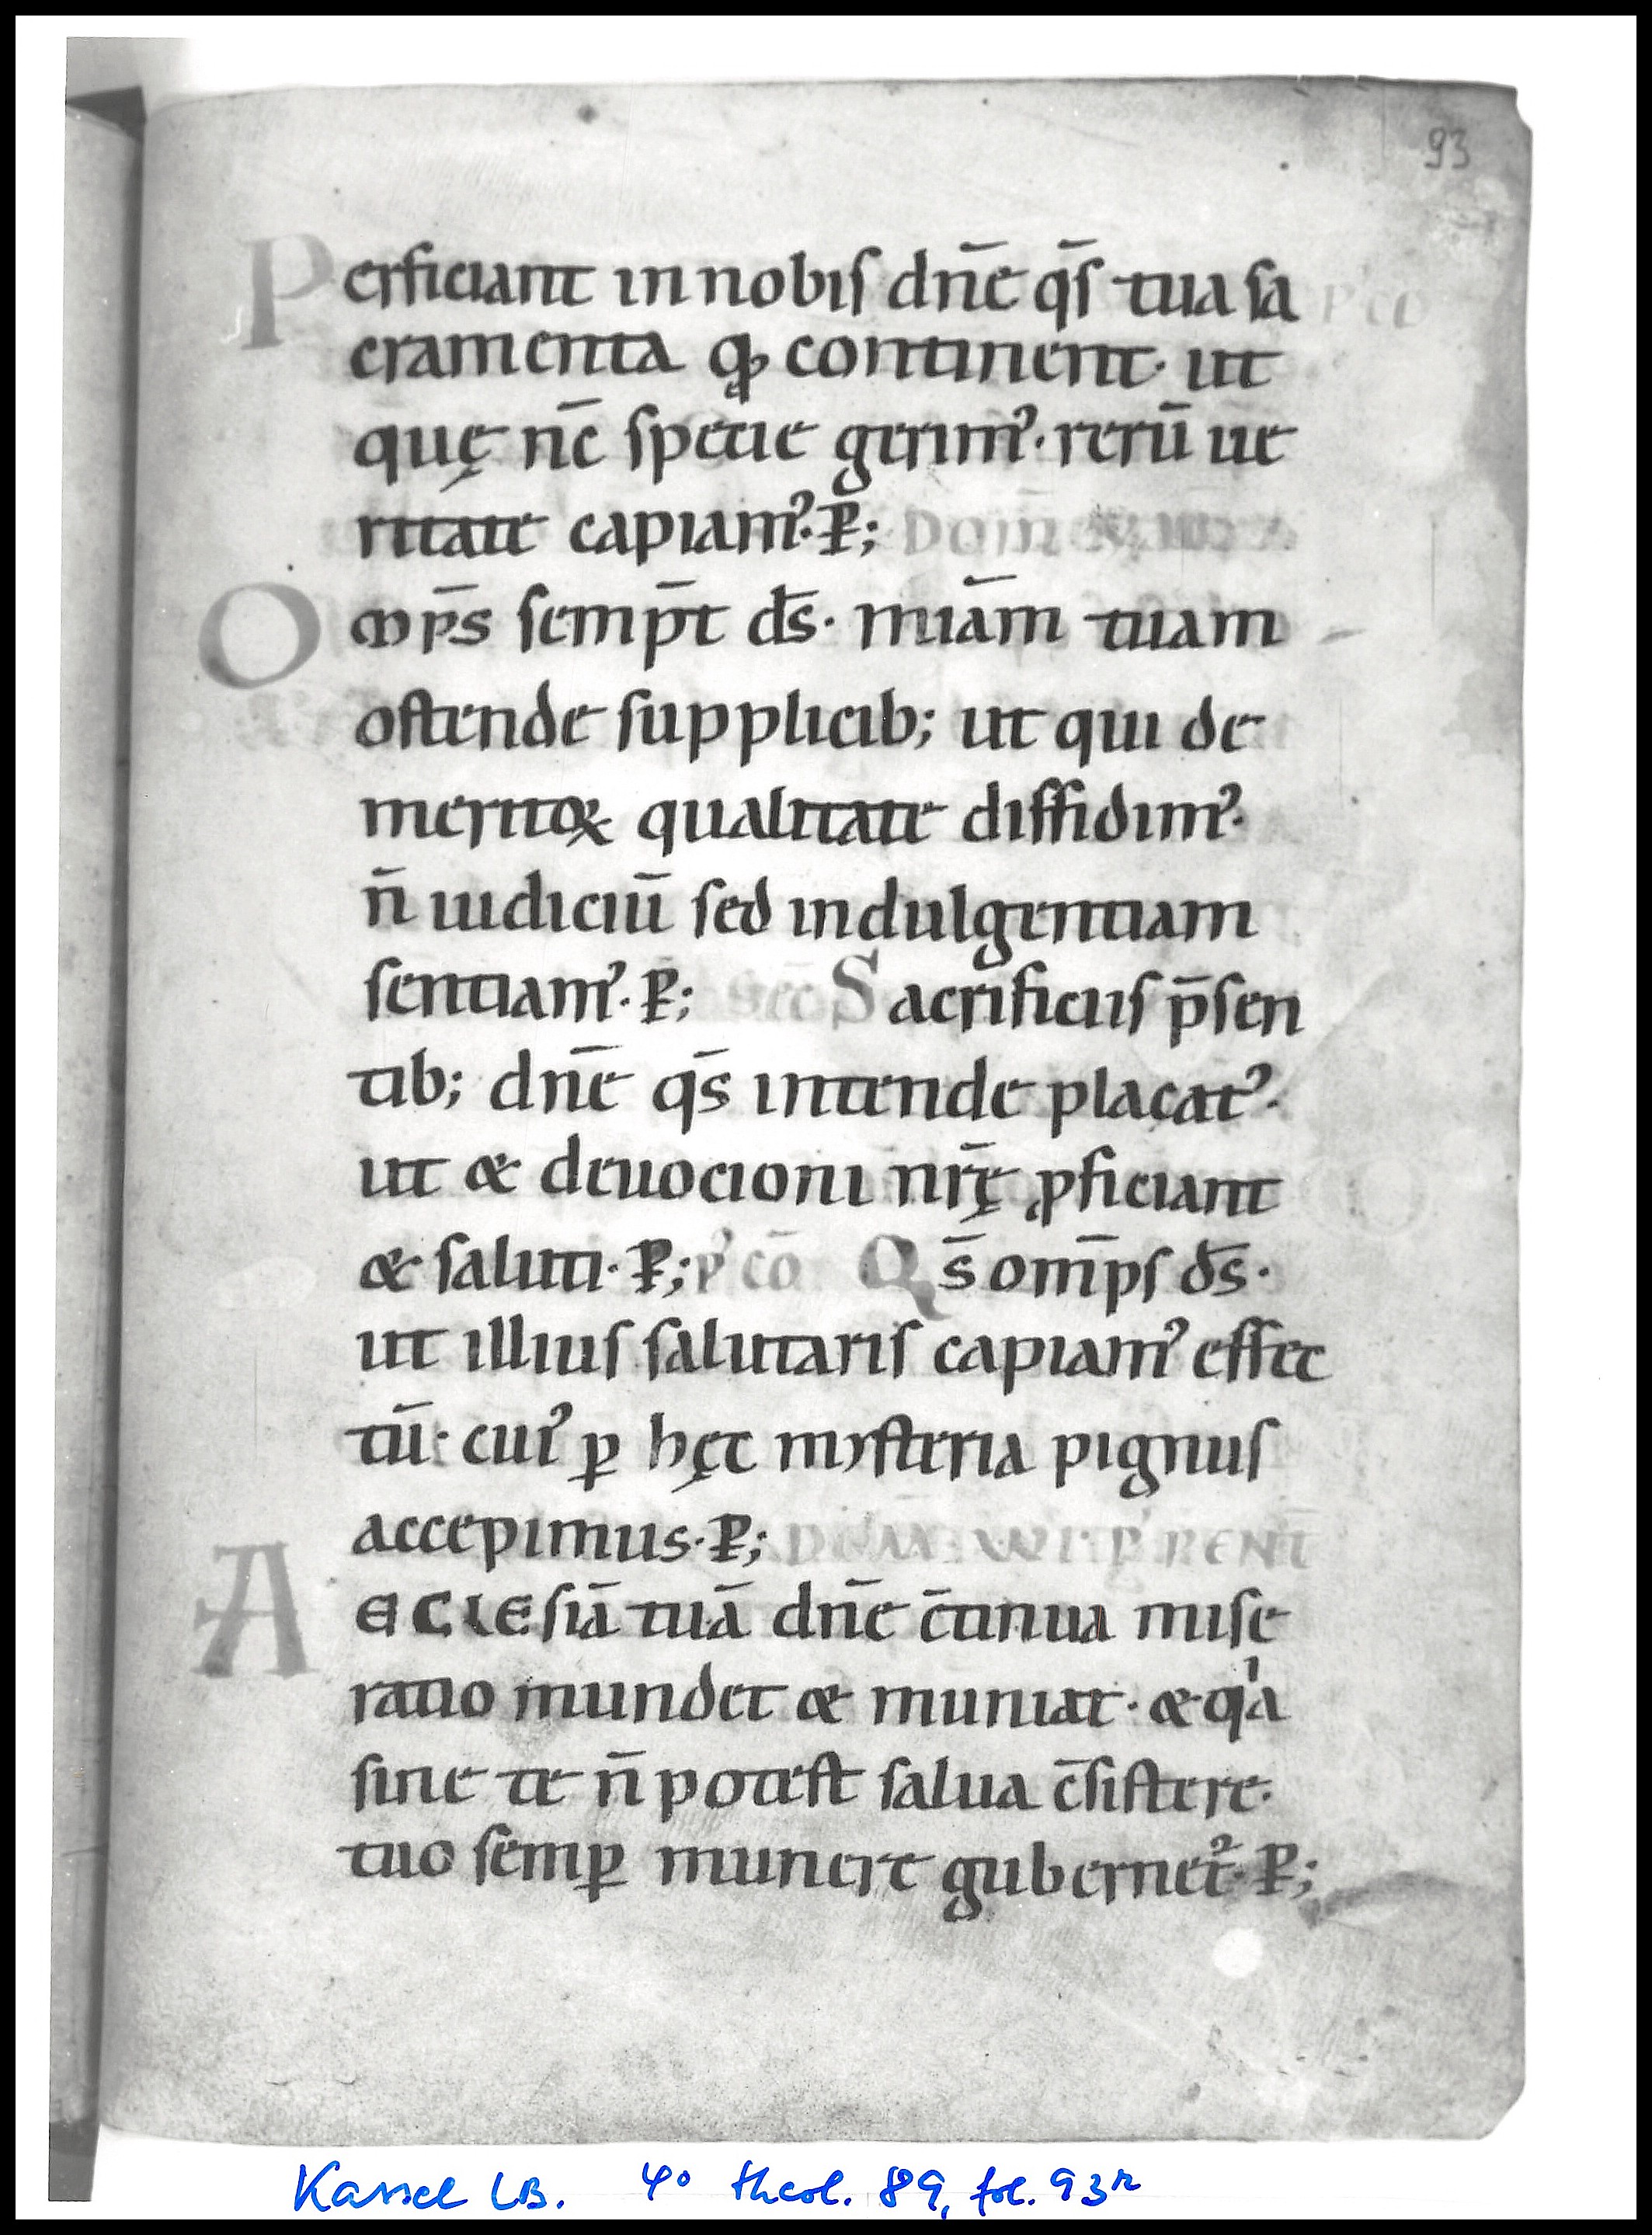 93
Perficiant in nobis dn̄e q̄s tua sa P' CO
cramenta q̨d continent· ut
quę n̄c specie gerim᾽· rerū ue
ritate capiam᾽· P̄; DOM̄
Om̄p̄s semp̄t d̄s· mīam tuam
ostende supplicib; ut qui de
meritoꝝ qualitate diffidim᾽·
n̄ iudiciū sed indulgentiam
sentiam᾽· P̄; Sec̄ Sacrificiis p̄sen
tib; dn̄e q̄s intende placat᾽·
ut & deuocioni nr̄ę ꝓficiant
& saluti· P̄; P' cō Qs̄ om̄ps d̄s·
ut illius salutaris capiam᾽ effec
tū· cui᾽ ꝑ hęc mysteria pignus
accepimus· P̄; DOM· XVI· P' PENT̄
AECLEsiā tuā dn̄e c̄tinua mise
ratio mundet & muniat· & qⁱa
sine te n̄ potest salua c̄sistere·
tuo semꝑ munere gubernet᾽· P̄;
Kassel LB. 4° theol. 89, fol. 93r